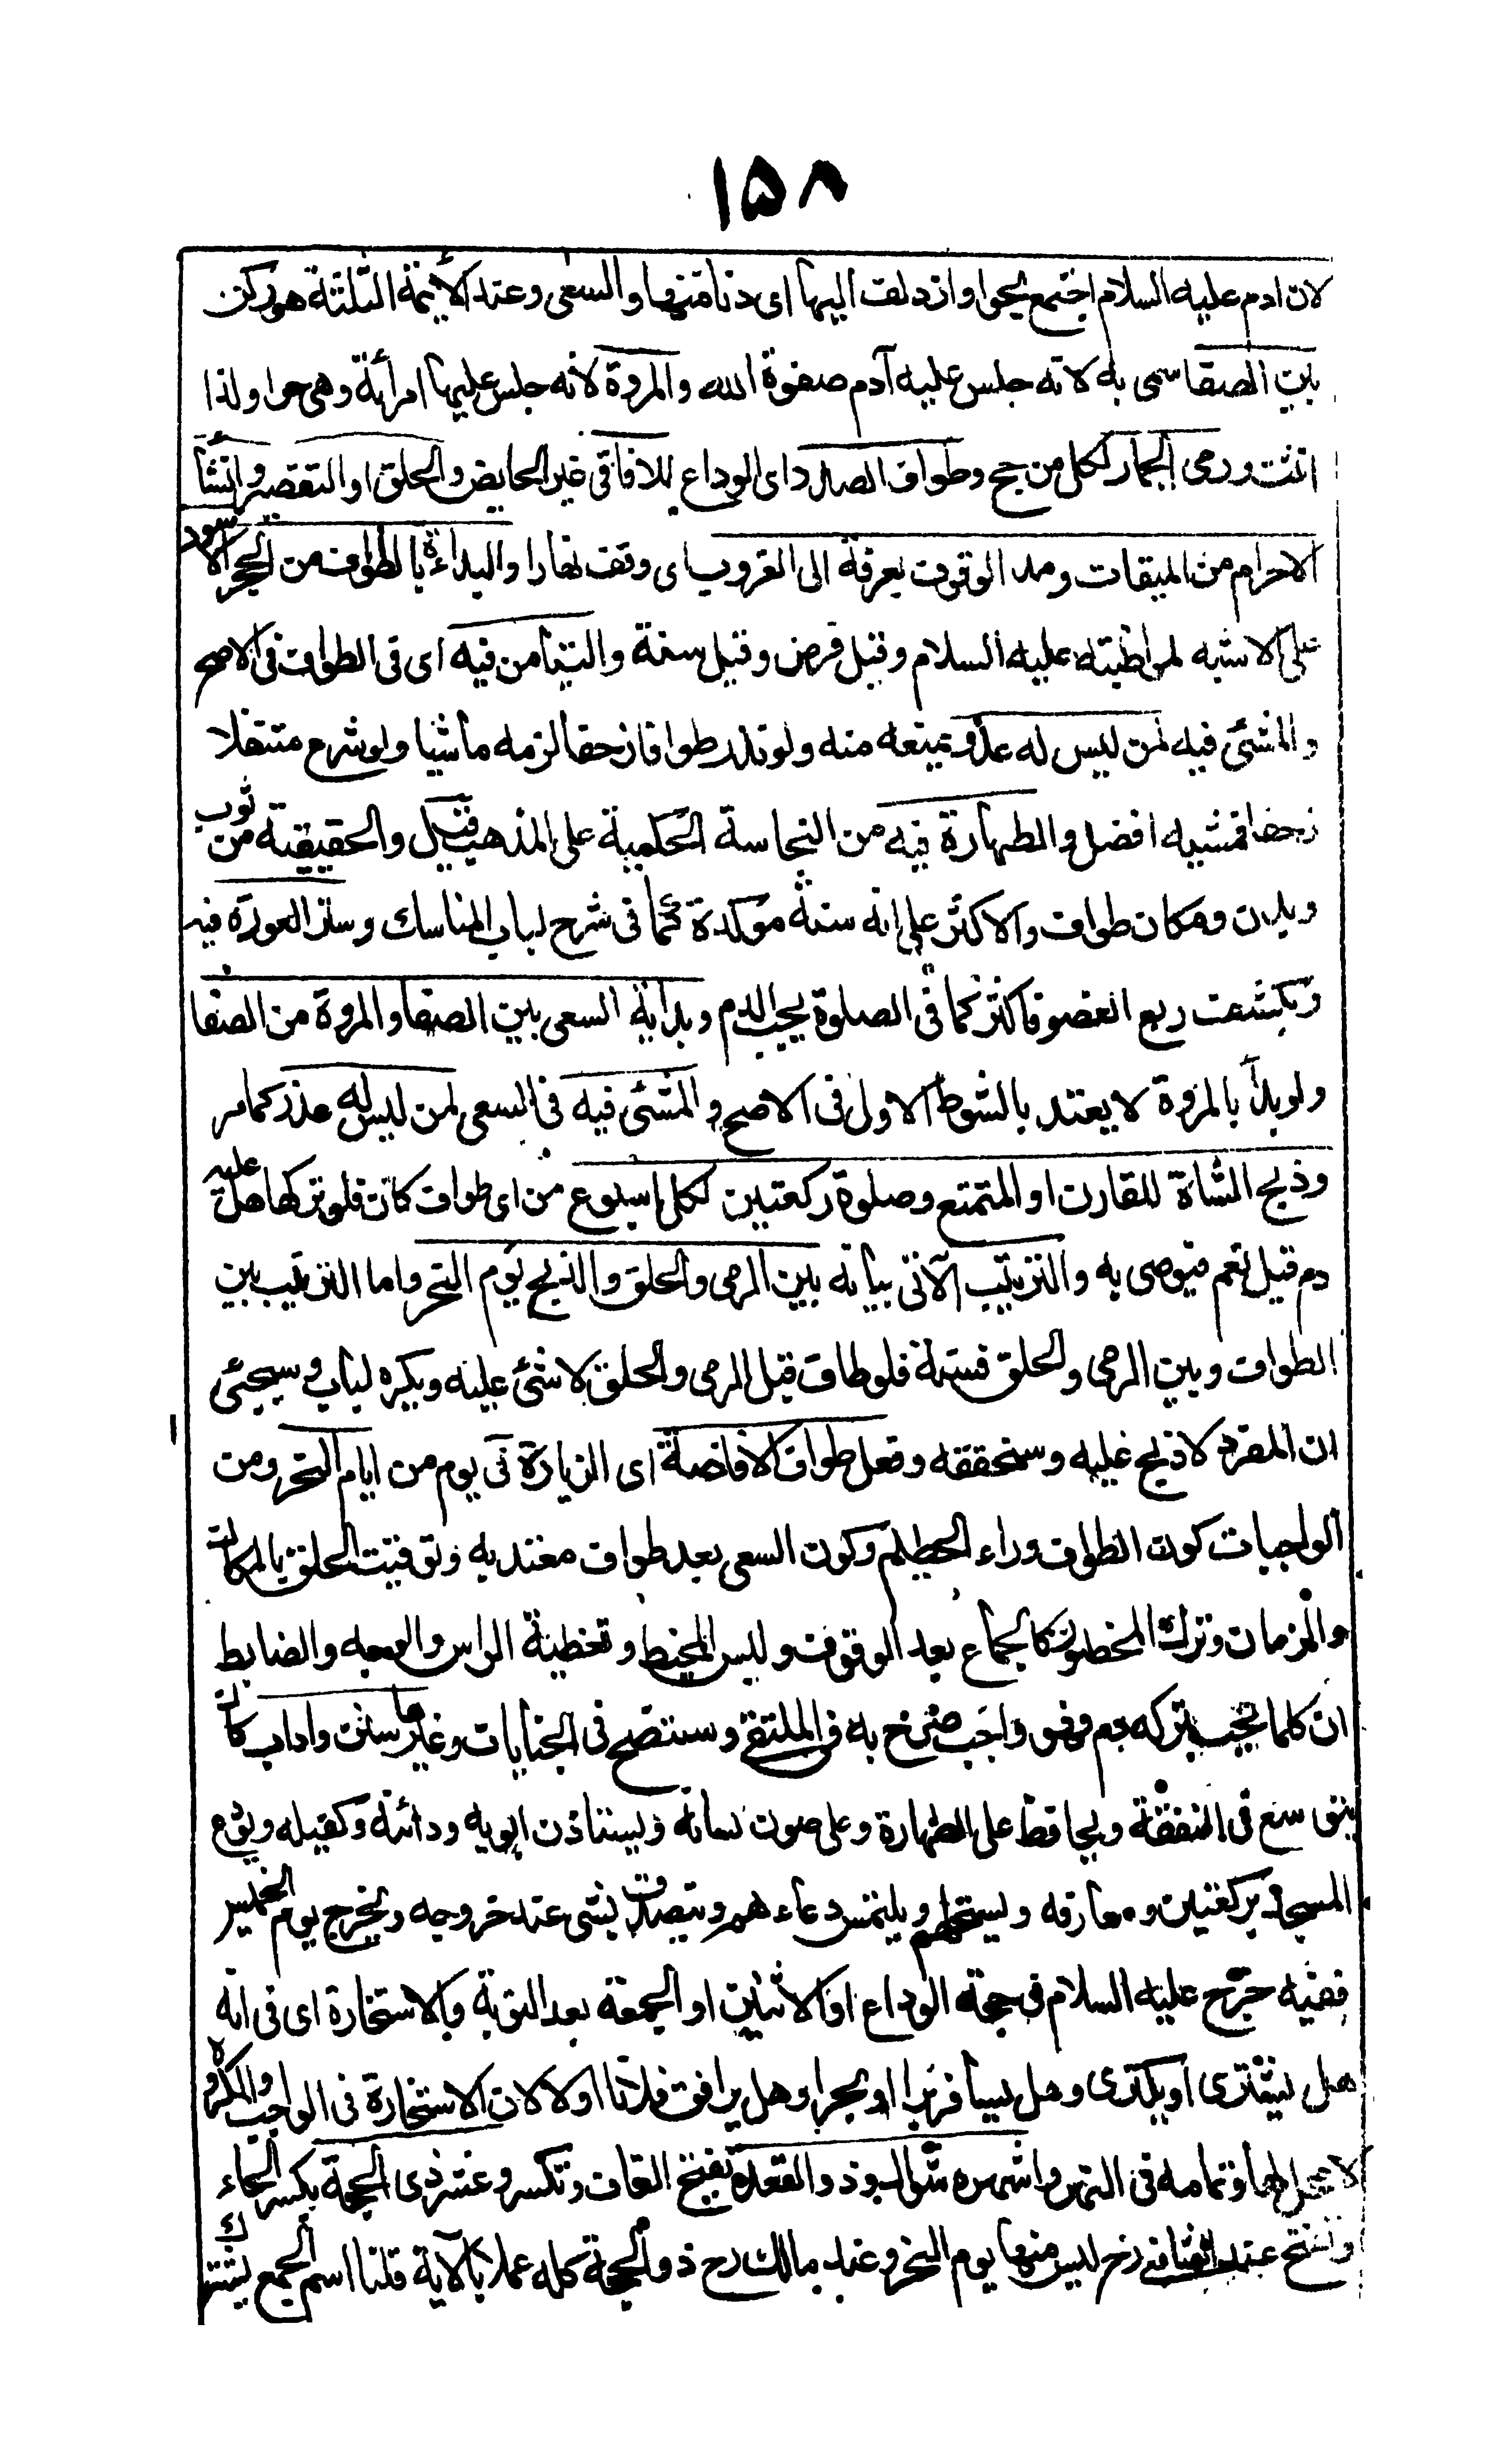 ١٥٨
لان ادم عليه السلام اجتمع بحوا وازدلف اليها اى دنا منها والسعى وعند الأيمة الثلثة هو ركن
بين الصفا سمى به لانه جلس عليه آدم صفوة الله والمروة لانه جلس عليها امرأته وهى حوا ولذا
انثت ورمى الجمار لكل من حج وطواف الصدر اى الوداع للافاقى غير الحايض والحلق او التقصير وانشأ
الاحرام من الميقات ومد الوقوف بعرفة الى الغروب اى وقف نهارا والبداءة بالطواف من الحجر الاسود
على الاشبه لمواظبته عليه السلام وقيل فرض وقيل سنة والتيامن فيه اى فى الطواف فى الاصح
والمشئ فيه لمن ليس له عذر يمنعه منه ولو نذر طوافا زحفا لزمه ماشيا ولو شرع متنفلا
زحفا فمشيه افضل والطهارة فيه من النجاسة الحكمية على المذهب قيل والحقيقية من ثوب
وبدن ومكان طواف والاكثر على انه سنة موكدة كما فى شرح لباب المناسك وستر العورة فيه
وبكشف ربع العضو فاكثر كما فى الصلوة يجب الدم وبداية السعى بين الصفا والمروة من الصفا
ولو بدأ بالمروة لا يعتد بالشوط الاول فى الاصح والمشئ فيه فى السعى لمن ليس له عذر كما مر
وذبح الشاة للقارن او المتمتع وصلوة ركعتين لكل اسبوع من اى طواف كان فلو تركها هل عليه
دم قيل نعم فيوصى به والترتيب الآتى بيانه بين الرمى والحلق والذبح يوم النحر واما الترتيب بين
الطواف وبين الرمى والحلق فسنة فلو طاف قبل الرمى والحلق لا شئ عليه ويكره لباب وسيجئ
ان المفرد لا ذبح عليه وسنحققه وفعل طواف الافاضة اى الزيارة فى يوم من ايام النحر ومن
الواجبات كون الطواف وراء الحطيم وكون السعى بعد طواف معتد به وتوقيت الحلق بالمكان
والزمان وترك المحظور كالجماع بعد الوقوف ولبس المخيط وتغطية الراس والوجه والضابط
ان كلما يجب بتركه دم فهو واجب صرح به فى الملتقى وستتضح فى الجنايات وغيرها سنن واداب كان
يتوسع فى النفقة ويحافظ على الطهارة وعلى صون لسانه ويستاذن ابويه ودائنه وكفيله ويودع
المسجد بركعتين ومعارفه ويستحلهم ويلتمس دعاءهم ويتصدق بشى عند خروجه ويخرج يوم الخميس
ففيه خرج عليه السلام فى حجة الوداع او الاثنين او الجمعة بعد التوبة والاستخارة اى فى انه
هل يشترى او يكترى وهل يسافر برا او بحرا وهل يرافق فلانا اولا لان الاستخارة فى الواجب والمكروه
لا محل لها وتمامه فى النهر واشهره شوال وذو القعدة بفتح القاف وتكسر وعشر ذى الحجة بكسر الحاء
وتفتح عند الشافعى رح ليس منها يوم النحر وعند مالك رح ذو الحجة كله عملا بالآية قلنا اسم الجمع يشترك